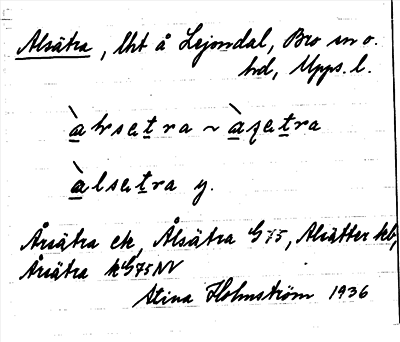 Alsätra, lht å Lejondal, Bro sn o.
hd, Upps. l.
àhrsetra ~ àʂetra
àlsetra y.
Årsätra ek, Ålsätra G75, Alsätter kb,
Årsätra kG75NV
Stina Holmström 1936